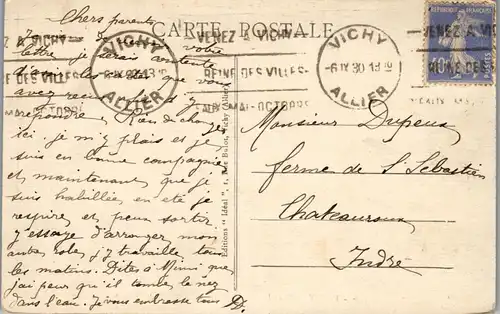 CARTE POSTALE
Chers parents
votre
lettre je serais contente
que vous
avez
répondre. Rien de changé
ici. je m'y plais et je
suis en bonne compagnie
et maintenant que je
suis habillée en été je
respire et peux sortir.
J'essaye d'arranger mon
autre robe j'y travaille tous
les matins. Dites à Mimi que
j'ai peur qu'il tombe le nez
dans l'eau. Je vous embrasse tous
D.
VICHY
-6 IX 30
ALLIER
VENEZ A VICHY
REINE DES VILLES
MAI-OCTOBRE
VICHY
-6 IX 30
ALLIER
VENEZ A VI
REINE DE
REPUBLIQUE FRANÇAISE
40
Editions "L'Idéal", 1, rue Bulot, Vichy (Allier)
Monsieur Dupeux
ferme de St Sébastien
Chateauroux
Indre